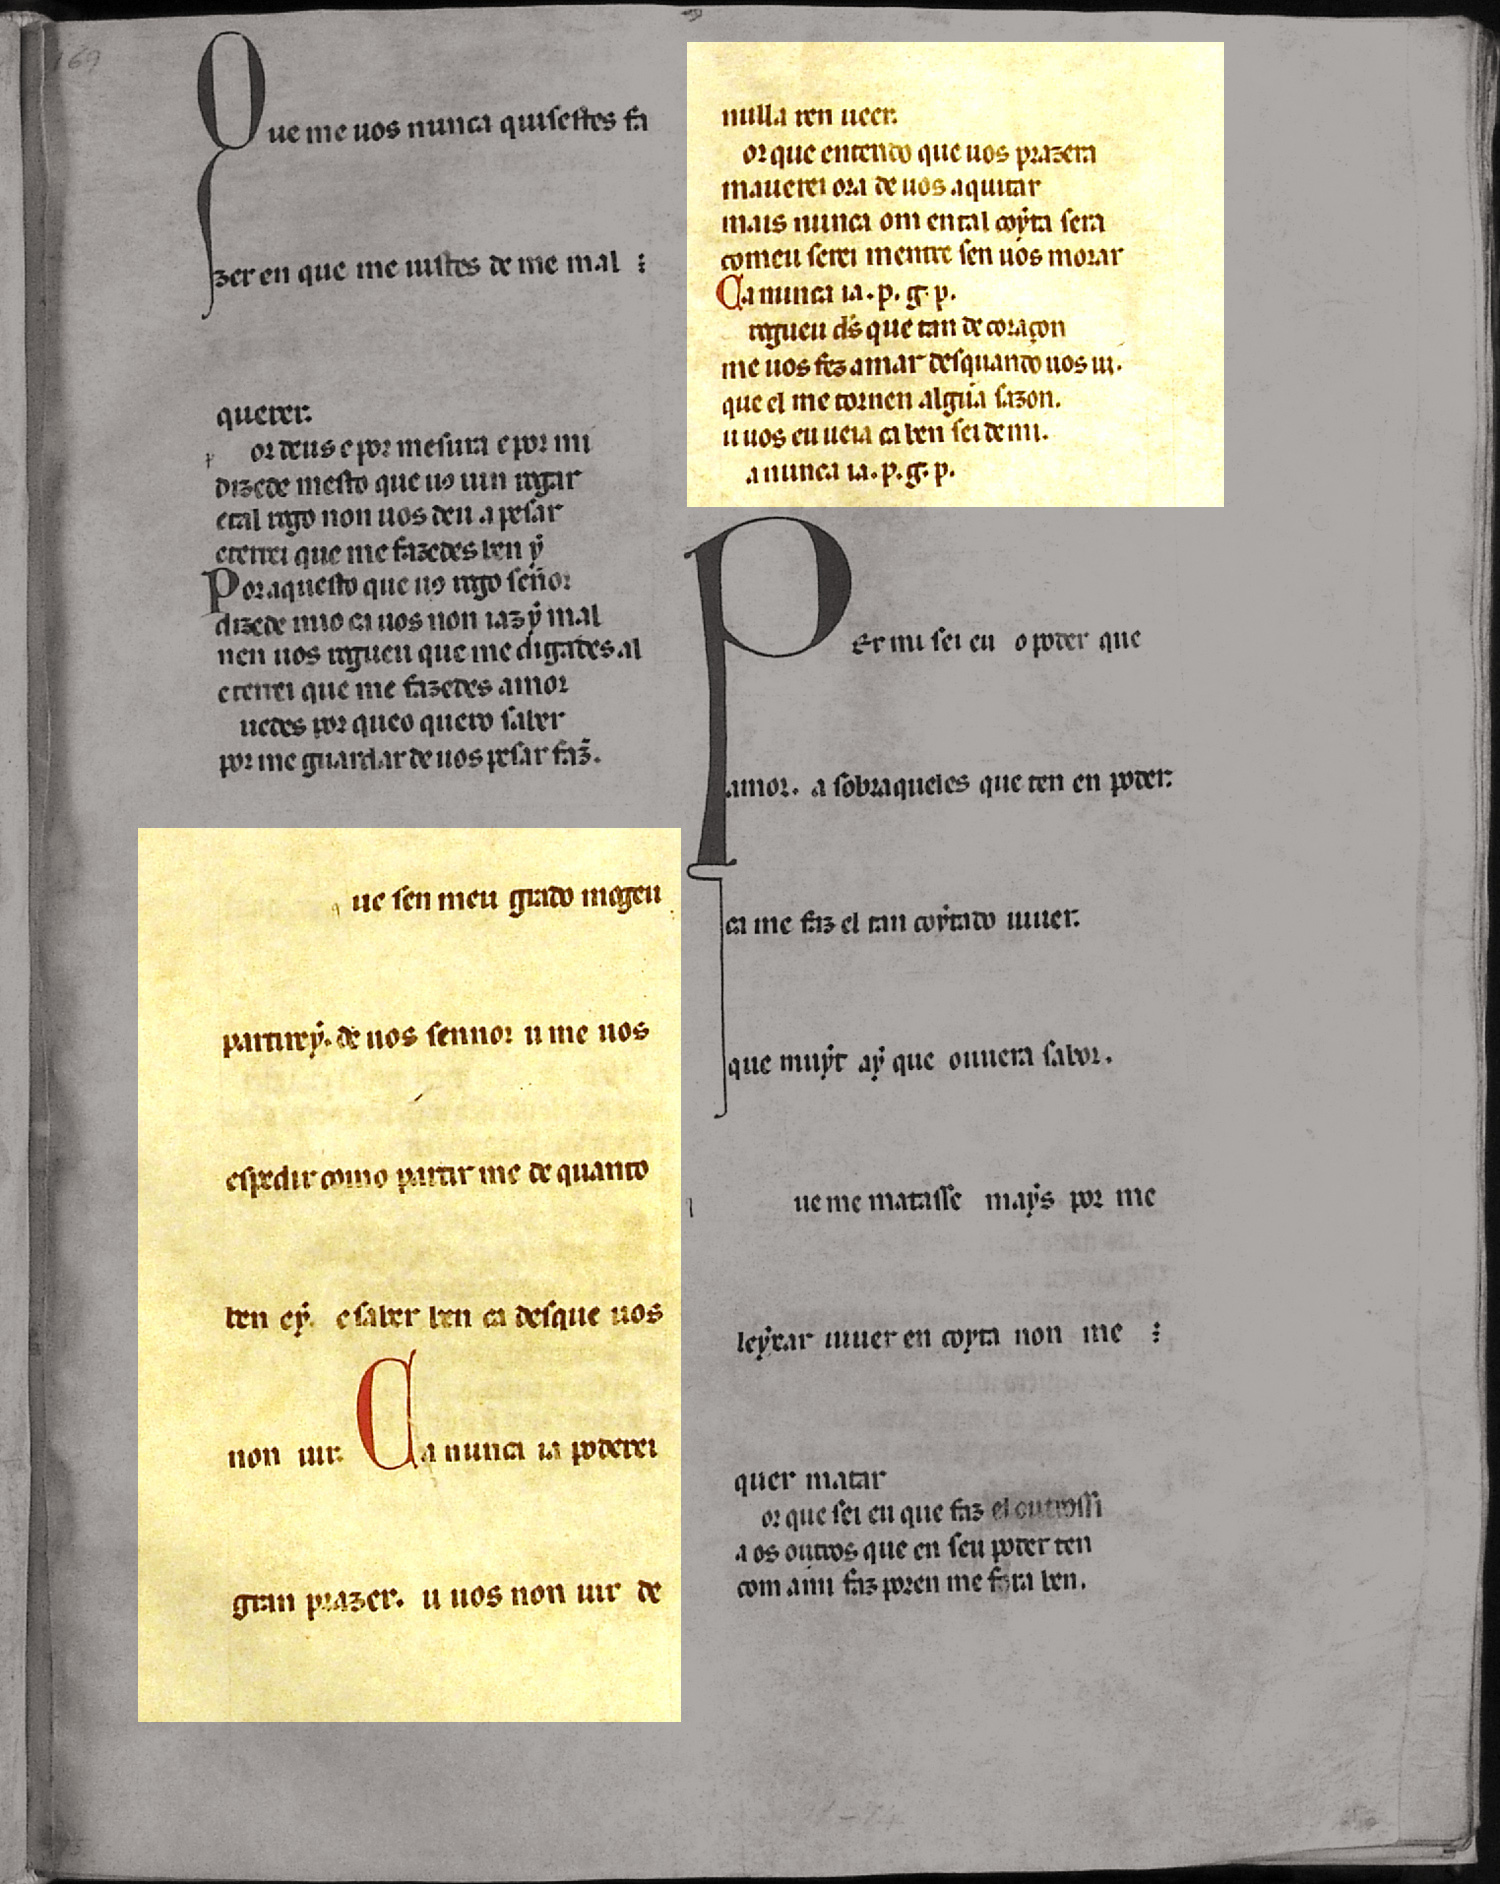 169
Que me uos nunca quisestes fa
zer en que me uistes de me mal :
querer.
or deus e por mesura e por mi
dizede mesto que uo uin rogar
e tal rogo non uos den a pesar
e terrei que me fazedes ben ẏ
Por aquesto que uo rogo señor
dizede mio ca uos non iaz ẏ mal
nen uos rogueu que me digades al
e terrei que me fazedes amor
uedes por queo quero saber
por me guardar de uos pesar faz̃.
q ue sen meu grado mogeu
partirey̾. de uos sennor u me uos
espedir como partir me de quanto
ben eẏ. e saber ben ca desque uos
non uir. Ca nunca ia poderei
gran prazer. u uos non uir de
nulla ren ueer.
or que entendo que uos prazera
mauerei ora de uos a quitar
mais nunca om en tal coẏta sera
comeu serei mentre sen uos morar
Ca nunca ia. p. g. p.
rogueu d̃s que tan de coraçon
me uos fez amar desquando uos ui.
que el me tornen algũa sazon.
u uos eu ueia ca ben sei de mi.
a nunca ia. p. g. p.
Per mi sei eu o poder que
amor. a sobraqueles que ten en poder.
ca me faz el tan coẏtado uiuer.
que muẏt aẏ que ouuera sabor.
ue me matasse maẏs por me
leẏxar uiuer en coyta non me :
quer matar
or que sei eu que faz el outrossi
a os outros que en seu poder ten
com a mi faz poren me fora ben.